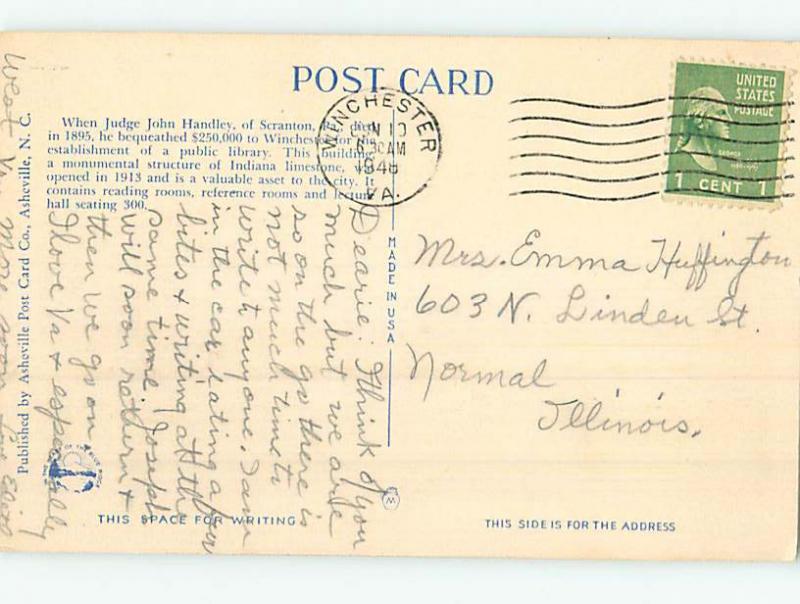 POST CARD
When Judge John Handley, of Scranton, died
in 1895, he bequeathed $250,000 to Winchester for the
establishment of a public library. This building,
a monumental structure of Indiana limestone, was
opened in 1913 and is a valuable asset to the city. It
contains reading rooms, reference rooms and lecture
hall seating 300.
Published by Asheville Post Card Co., Asheville, N. C.
WINCHESTER
10
AM
VA.
UNITED
STATES
POSTAGE
1 CENT 1
MADE IN USA
Dearie: I think of you
much but we are
so on the go there is
not much time to
write to anyone. I am
in the car eating a few
bites & writing at the
same time. Joseph
will soon return &
then we go on
I love Va & especially
West Va. More soon Love
Mrs. Emma Huffington
603 N. Linden St.
Normal
Illinois.
THIS SPACE FOR WRITING
THIS SIDE IS FOR THE ADDRESS
W